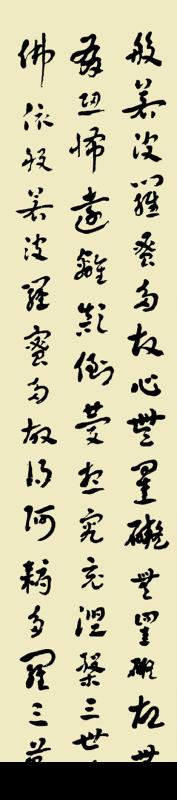 般若波羅蜜多故心無罣礙無罣礙故無
有恐怖遠離顛倒夢想究竟涅槃三世
佛依般若波羅蜜多故得阿耨多羅三藐